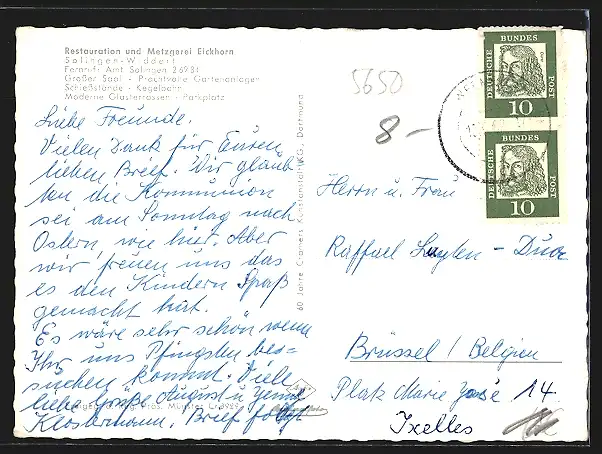 Restauration und Metzgerei Eickhorn
Solingen-Widdert
Fernruf: Amt Solingen 26981
Großer Saal - Prachtvolle Gartenanlagen
Schießstände - Kegelbahn
Moderne Glasterrassen - Parkplatz
Liebe Freunde.
Vielen Dank für Euren
lieben Brief. Wir glaub-
ten die Kommunion
sei am Sonntag nach
Ostern, wie hier. Aber
wir freuen uns das
es den Kindern Spaß
gemacht hat.
Es wäre sehr schön wenn
Ihr uns Pfingsten bes=
suchen kommt. Viele
liebe Grüße August u.
Klostermann. Brief folgt
60 Jahre Cramers Kunstanstalt KG., Dortmund
5650
8-
DEUTSCHE BUNDES POST
10
DEUTSCHE BUNDES POST
10
Herrn u. Frau
Raffael
Brüssel / Belgien
Platz Marie José 14
Ixelles